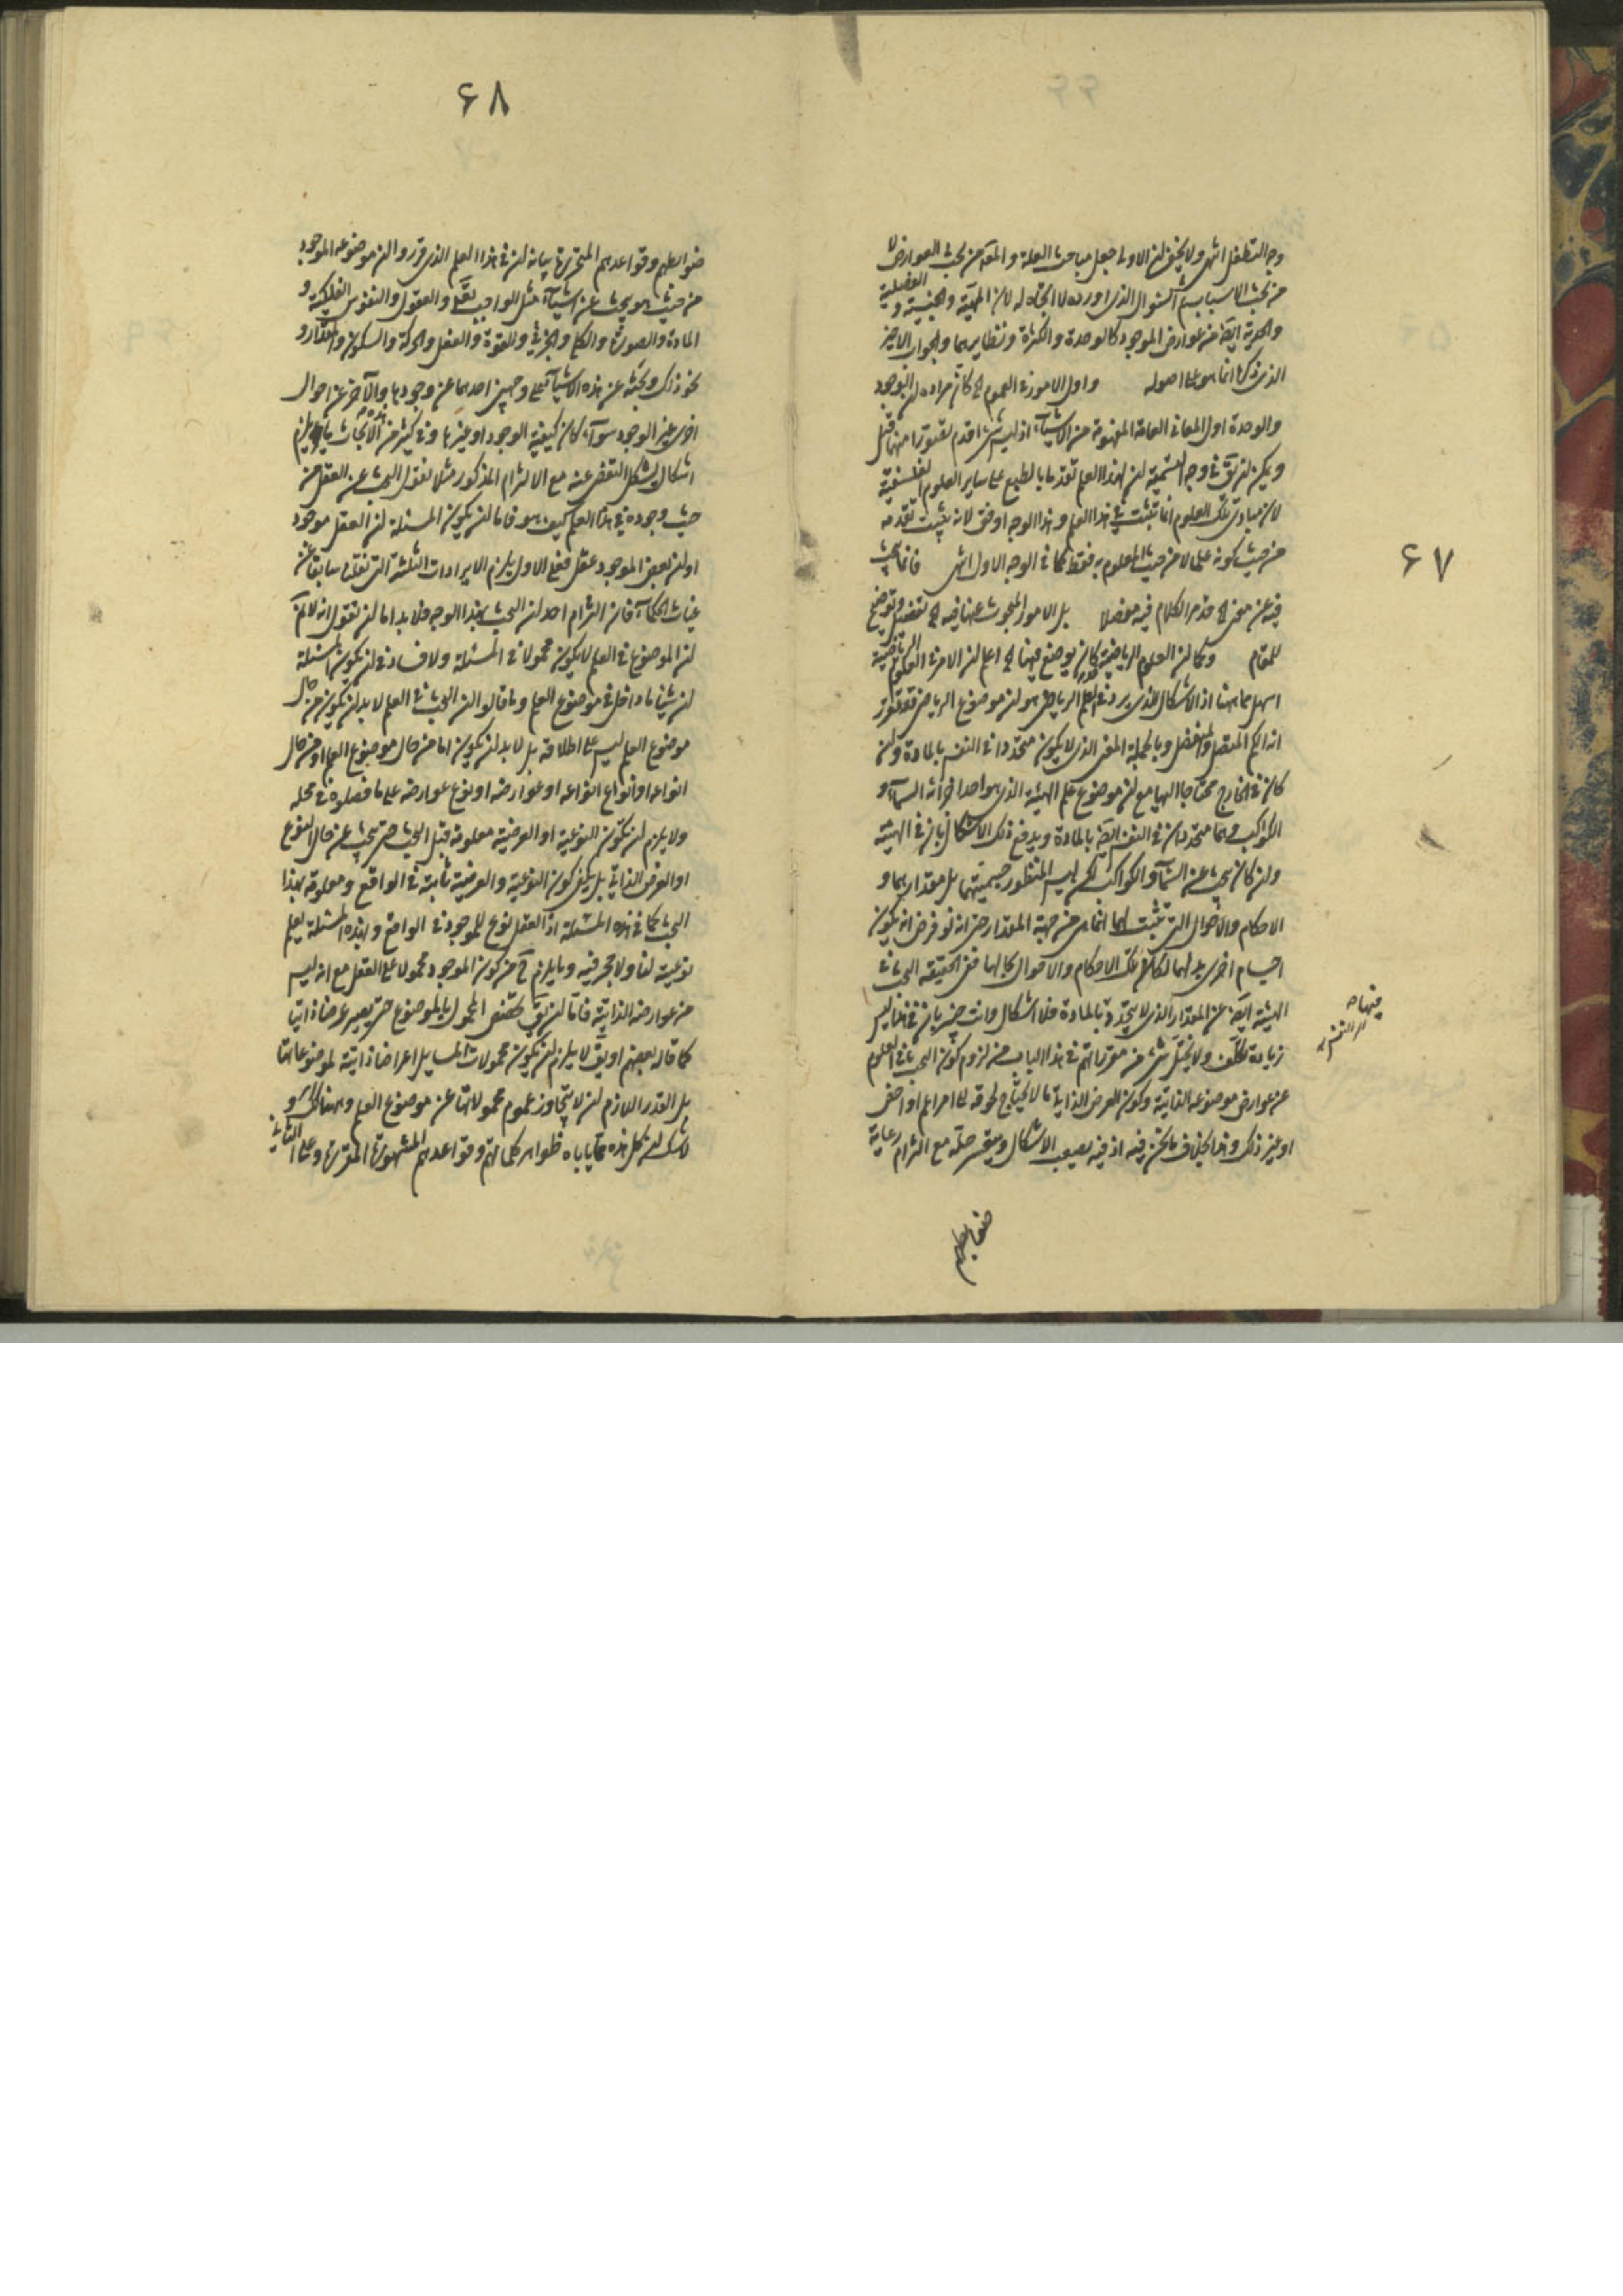 ۶۷
وجه التطفل انتهى ولا يخفى ان الاولى جعل مباحث العلة و المعلول من بحث العوارض لا
من بحث الاسباب ثم السؤال الذى اورده لا اتجاه له لان المهية والجنسية و الفصلية و
والجزئية ايضا من عوارض الموجود كالوحدة والكثرة ونظايرهما والجواب الاخير
الذى ذكره انما هو على اصوله و اول الامور فى العموم الخ كان مراده ان الوجود
والوحدة اول المعانى العامة المفهومة من الاشياء اذ ليس شىء اقدم تصورا منهما قيل
ويمكن ان يق فى وجه التسمية ان لهذا العلم تقدما بالطبع على ساير العلوم الفلسفية
لان مبادى تلك العلوم انما تثبت فى هذا العلم و هذا الوجه اوفق لانه يثبت تقدمه
من حيث كونه علما لا من حيث المعلوم به فقط كما فى الوجه الاول انتهى فانما يبحث
فيه عن معنى الخ قد مر الكلام فيه مفصلا بل الامور المبحوث عنها فيه الخ تفصيل وتوضيح
للمقام وكما ان العلوم الرياضية كان يوضع فيها الخ اعلم ان الامر فى العلوم الرياضية
اسهل مما هنا اذ الاشكال الذى يرد فى العلم الرياضى هو ان موضوع الرياضى قد تقرر
انه الكم المتصل والمنفصل وبالجملة المعنى الذى لا يكون متحددا فى النفس بالمادة وان
كان فى الخارج محتاجا اليها مع ان موضوع علم الهيئة الذى هو احد اجزائه السماء و
الكواكب وهما متحددان فى النفس ايضا بالمادة ويدفع ذلك الاشكال بان فى الهيئة
وان كان يبحث عن السماء والكواكب لكن ليس المنظور جسميتهما بل مقدارهما و
الاحكام والاحوال التى تثبت لهما انما هى من جهة المقدار حتى انه لو فرض انه يكون
اجسام اخرى بدلهما لكان تلك الاحكام والاحوال بحالها ففى الحقيقة البحث فى
الهيئة ايضا عن المقدار الذى لا يتحدد بالمادة فلا اشكال وانت خبير بان فى هذا ليس
زيادة تكلف ولا يختل شىء من مقرراتهم فى هذا الباب من لزوم كون البحث فى العلوم
عن عوارض موضوعه الذاتية وكون العرض الذاتى ما لا يحتاج لحوقه الى امر اعم او اخص
او غير ذلك و هذا بخلاف ما نحن فيه اذ فيه يصعب الاشكال ويعسر حله مع التزام رعاية
ضوابطهم
۶۸
ضوابطهم وقواعدهم المتحررة بيانه ان فى هذا العلم الذى قرروا ان موضوعه الموجود
من حيث هو يبحث عن اشياء مثل الواجب تعالى والعقول والنفوس الفلكية و
المادة والصورة والكلى والجزئى والقوة والفعل والحركة والسكون والمقدار و
نحو ذلك وبحثه عن هذه الاشياء على وجهين احدهما عن وجودها والآخر عن احوال
اخرى غير الوجود سواء كان كيفية الوجود او غيرها وفى كثير من هذه الابحاث يلزم
اشكال يشكل التفصى عنه مع الالتزام المذكور مثلا نقول البحث عن العقل من
حيث وجوده فى هذا العلم كيف هو فاما ان يكون المسئلة ان العقل موجود
او ان بعض الموجود عقل فعلى الاول يلزم الايرادات الثلثة التى نقلنا سابقا عن
غياث الحكماء فان التزام احد ان البحث بهذا الوجه فلا بد اما ان نقول انه لا نم
ان الموضوع فى العلم لا يكون محمولا فى المسئلة ولا فساد فى ان يكون المسئلة
ان شيئا ما داخل فى موضوع العلم وما قالوا ان البحث فى العلم لا بد ان يكون من حال
موضوع العلم ليس على اطلاقه بل لا بد ان يكون اما من حال موضوع العلم او من حال
انواعه او انواع انواعه او عوارضه او نوع عوارضه على ما فصلوه فى محله
ولا يلزم ان تكون النوعية او العرضية معلومة قبل البحث حتى يبحث عن حال النوع
او العرض الذاتى بل يكفى كون النوعية والعرضية ثابتة فى الواقع و معلومة بهذا
البحث كما فى هذه المسئلة اذ العقل نوع للموجود فى الواقع و بهذه المسئلة يعلم
نوعية لنا ولا حجر فيه وما يلزم ح من كون الموجود محمولا على العقل مع انه ليس
من عوارضه الذاتية فاما ان يق يخصص المحمول بالموضوع حتى يصير عرضا ذاتيا
كما قاله بعضهم او يق لا يلزم ان يكون محمولات المسايل اعراضا ذاتية لموضوعاتها
بل القدر اللازم ان لا يتجاوز عموم محمولاتها عن موضوع العلم وههنا كك و
لا شك ان كل هذه مما ياباه ظواهر كلماتهم وقواعدهم المشهورة المقررة وعلى الثانى